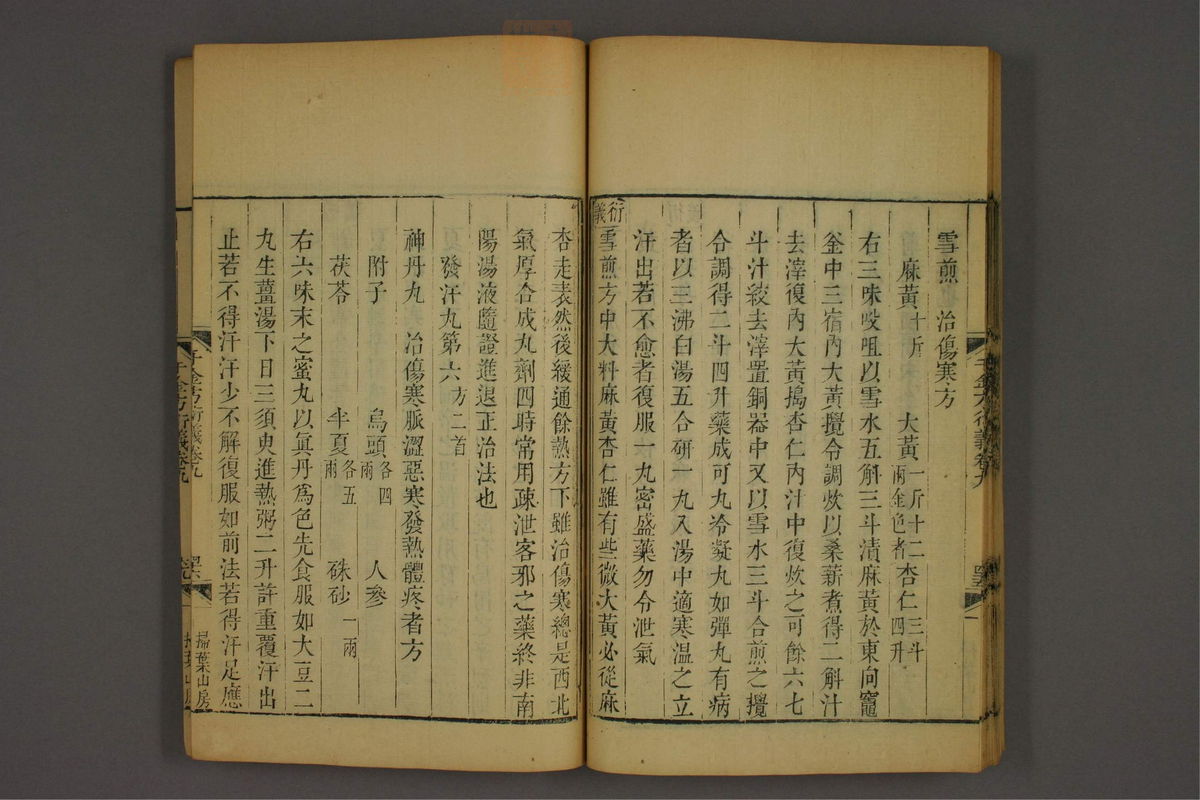 雪煎 治傷寒方
麻黃十斤 大黃一斤十二兩金色者 杏仁三斗四升
右三味㕮咀以雪水五斛三斗漬麻黃於東向竈
釜中三宿內大黃攪令調炊以桑薪煮得二斛汁
去滓復內大黃搗杏仁內汁中復炊之可餘六七
斗汁絞去滓置銅器中又以雪水三斗合煎之攪
合調得二斗四升藥成可丸冷凝丸如彈丸有病
者以三沸白湯五合研一丸入湯中適寒温之立
汗出若不愈者復服一丸密盛藥勿令泄氣
衍義
雪煎方中大料麻黃杏仁雖有些微大黃必從麻
杏走表然後緩通餘熱方下雖治傷寒總是西北
氣厚合成丸劑四時常用疎泄客邪之藥終非南
陽湯液隨證進退正治法也
發汗丸第六 方二首
神丹丸 治傷寒脈澀惡寒發熱體疼者方
附子 烏頭各四兩 人參
茯苓 半夏各五兩 硃砂一兩
右六味末之蜜丸以眞丹爲色先食服如大豆二
丸生薑湯下日三須臾進熱粥二升許重覆汗出
止若不得汗汗少不解復服如前法若得汗足應
千金方衍義卷九
掃葉山房